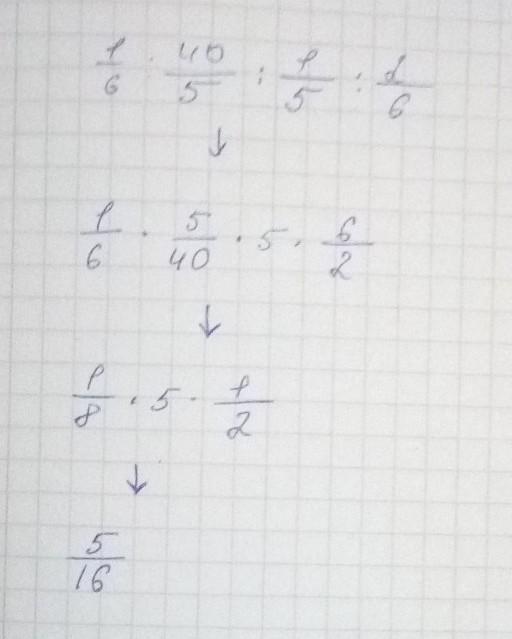 1/6 · 40/5 : 1/5 : 2/6
↓
1/6 · 5/40 · 5 · 6/2
↓
1/8 · 5 · 1/2
↓
5/16